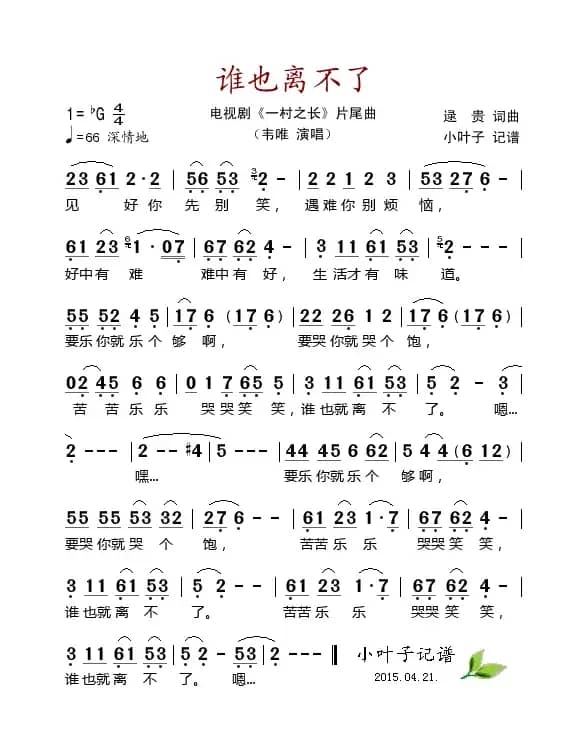 谁也离不了
1=♭G 4/4
电视剧《一村之长》片尾曲
逯 贵 词曲
♩=66 深情地
（韦唯 演唱）
小叶子 记谱
23 61 2·2 | 56 53 3 2 - | 2 2 1 2 3 | 53 27 6 - |
见 好你 先 别 笑， 遇难你别烦 恼，
61 23 6 1· 07 | 67 62 4 - | 3 11 61 53 | 5 2 - - - |
好中有 难 难中有 好， 生 活才有 味 道。
55 52 4 5 | 17 6 (17 6) | 22 26 1 2 | 17 6 (17 6) |
要乐你就乐个 够 啊， 要哭你就哭 个 饱，
02 45 6 6 | 0 1 7 65 5 | 3 11 61 53 | 5 2 - 3 |
苦 苦乐乐 哭哭笑 笑，谁也就离 不 了。 嗯...
2 - - - | 2 - - #4 | 5 - - - | 44 45 6 62 | 5 4 4 (6 12) |
嘿... 要乐你就乐个 够啊，
55 55 53 32 | 27 6 - - | 61 23 1·7 | 67 62 4 - |
要哭你就哭 个 饱， 苦苦乐 乐 哭哭笑 笑，
3 11 61 53 | 5 2 - - | 61 23 1·7 | 67 62 4 - |
谁也就离 不 了。 苦苦乐 乐 哭哭笑 笑，
3 11 61 53 | 5 2 - 53 | 2 - - - ‖ 小叶子记谱
谁也就离 不 了。 嗯... 2015.04.21.